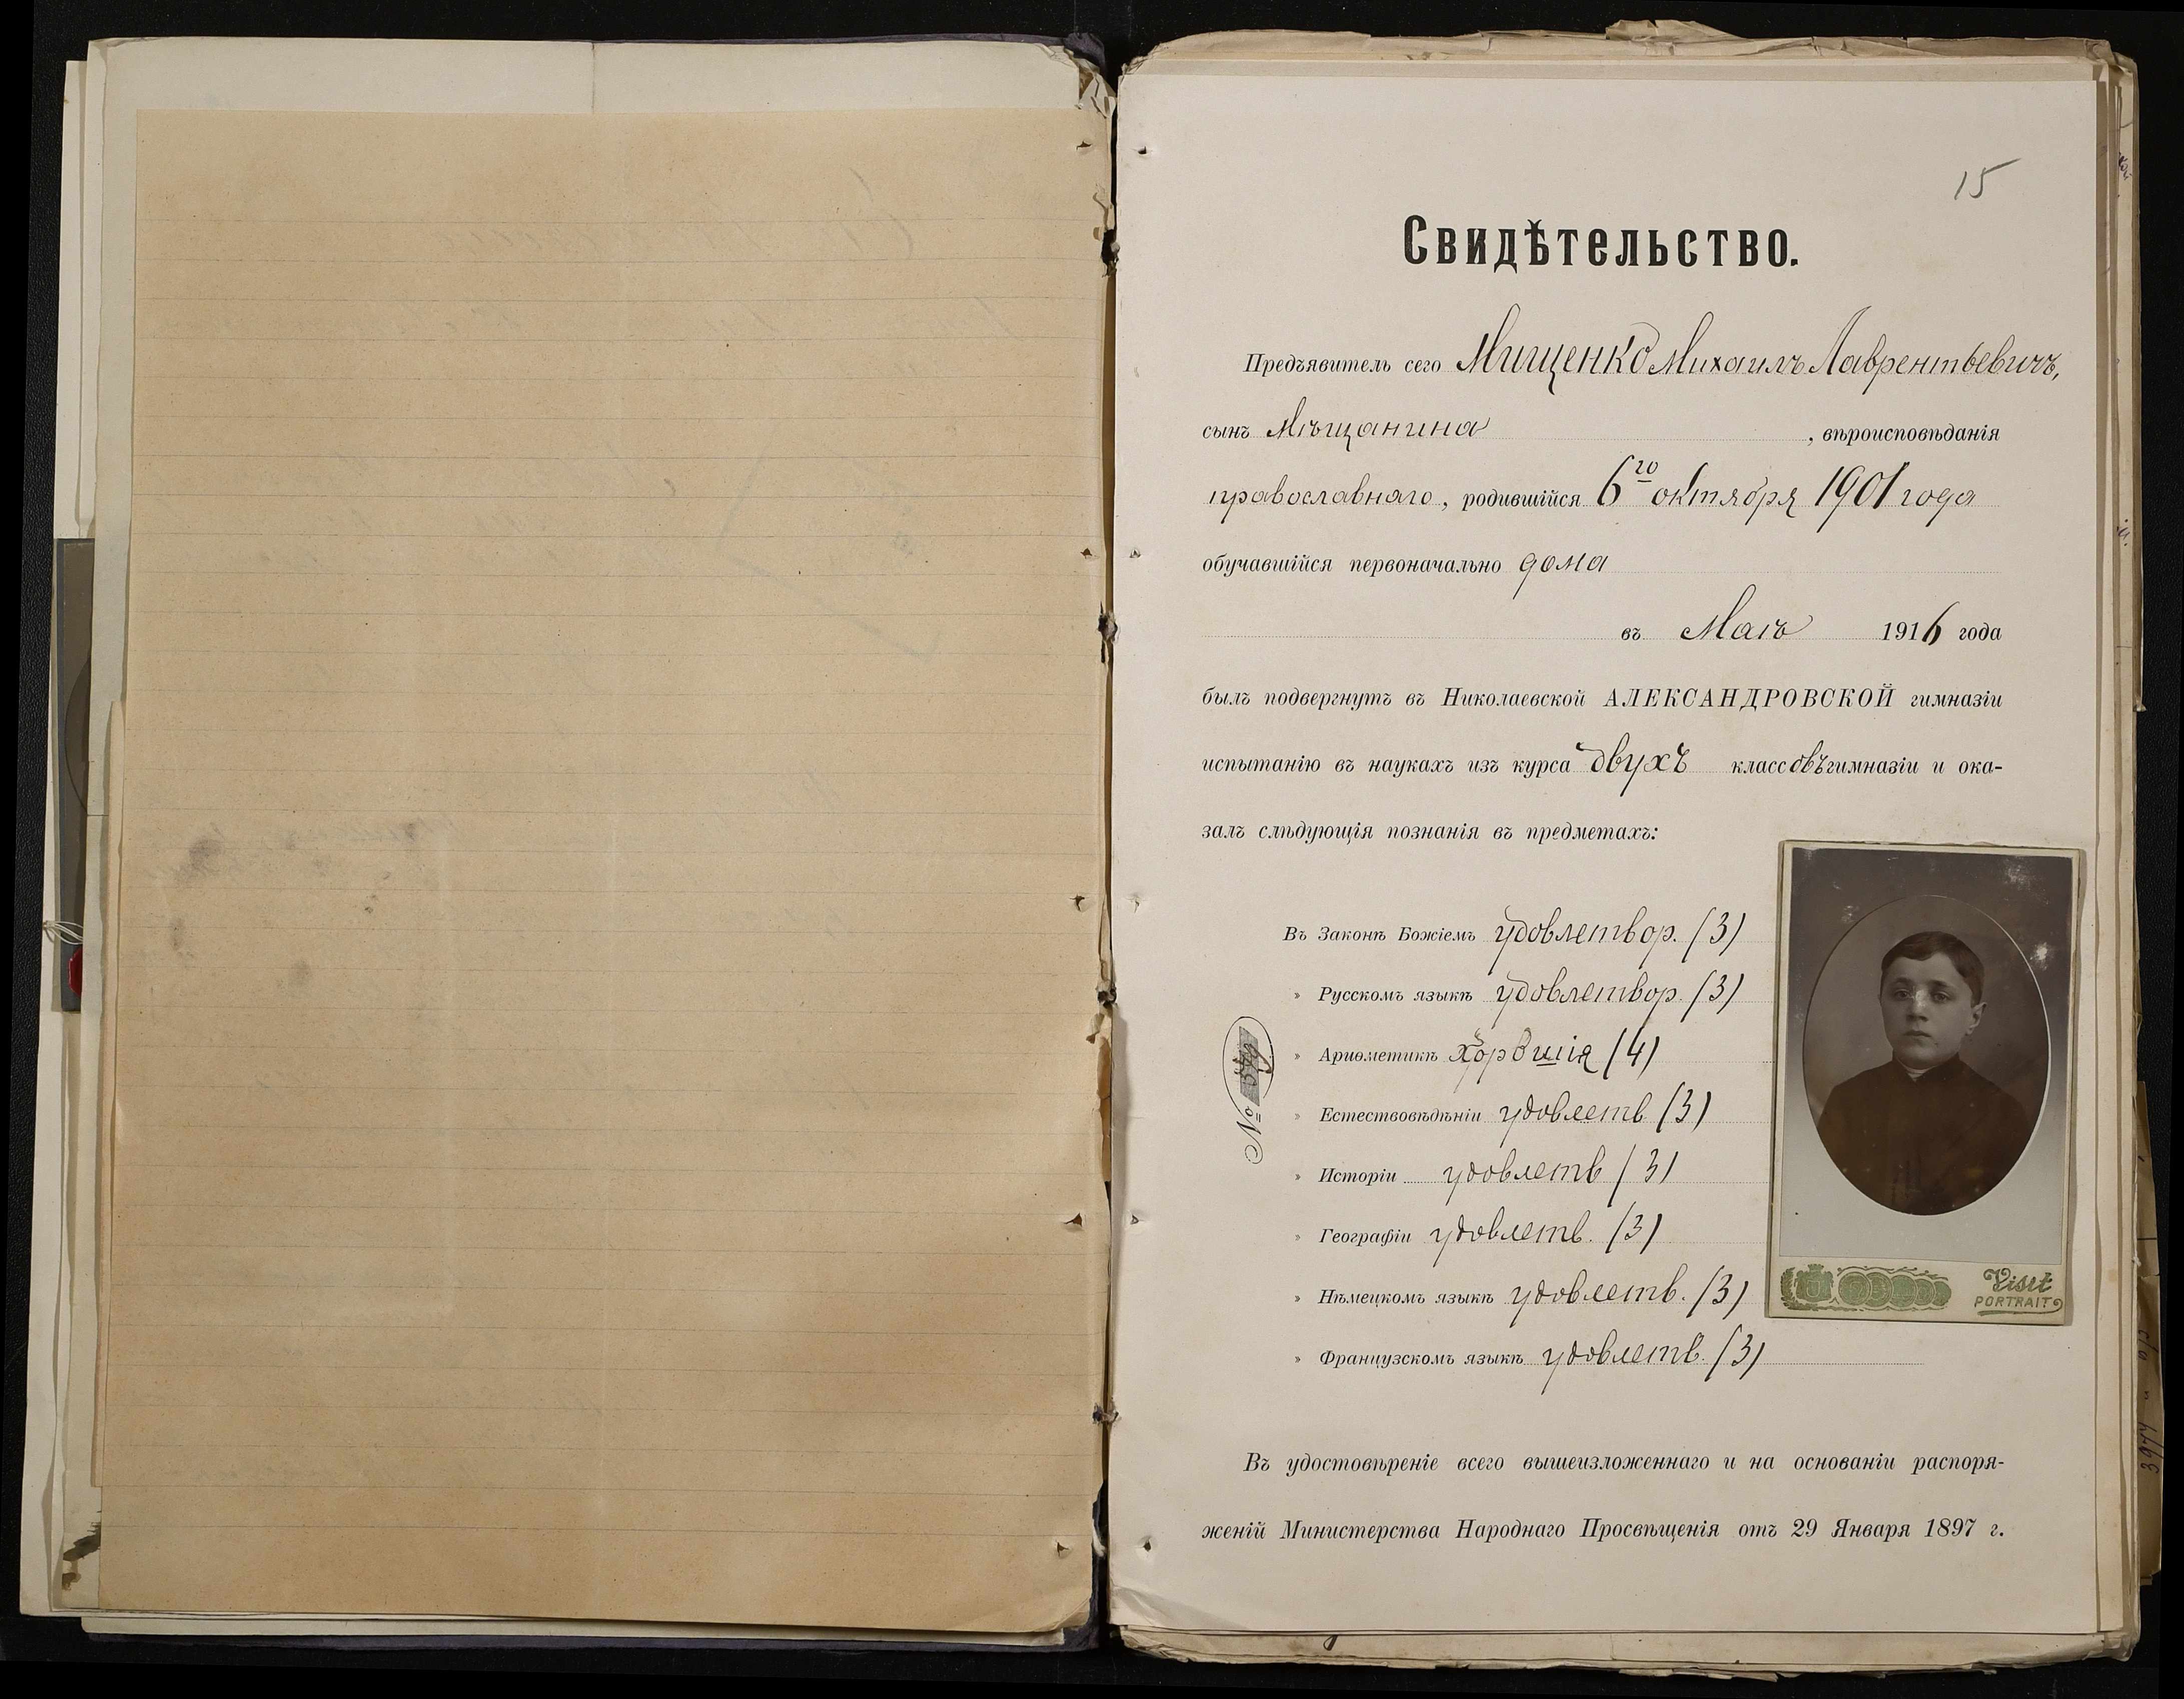 15
Свидѣтельство.
Предъявитель сего Мищенко Михаилъ Лаврентьевичъ,
сынъ Мѣщанина, вѣроисповѣданія
православнаго, родившійся 6го октября 1901 года
обучавшійся первоначально дома
въ Маѣ 1916 года
былъ подвергнутъ въ Николаевской АЛЕКСАНДРОВСКОЙ гимназіи
испытанію въ наукахъ изъ курса двухъ классовъ гимназіи и ока-
залъ слѣдующія познанія въ предметахъ:
Въ Законѣ Божіемъ удовлетвор. (3)
» Русскомъ языкѣ удовлетвор. (3)
» Ариѳметикѣ хорошія (4)
» Естествовѣдѣніи удовлетв (3)
» Исторіи удовлетв (3)
» Географіи удовлетв. (3)
» Нѣмецкомъ языкѣ удовлетв. (3)
» Французскомъ языкѣ удовлетв. (3)
№
Visit
PORTRAIT
Въ удостовѣреніе всего вышеизложеннаго и на основаніи распоря-
женій Министерства Народнаго Просвѣщенія отъ 29 Января 1897 г.